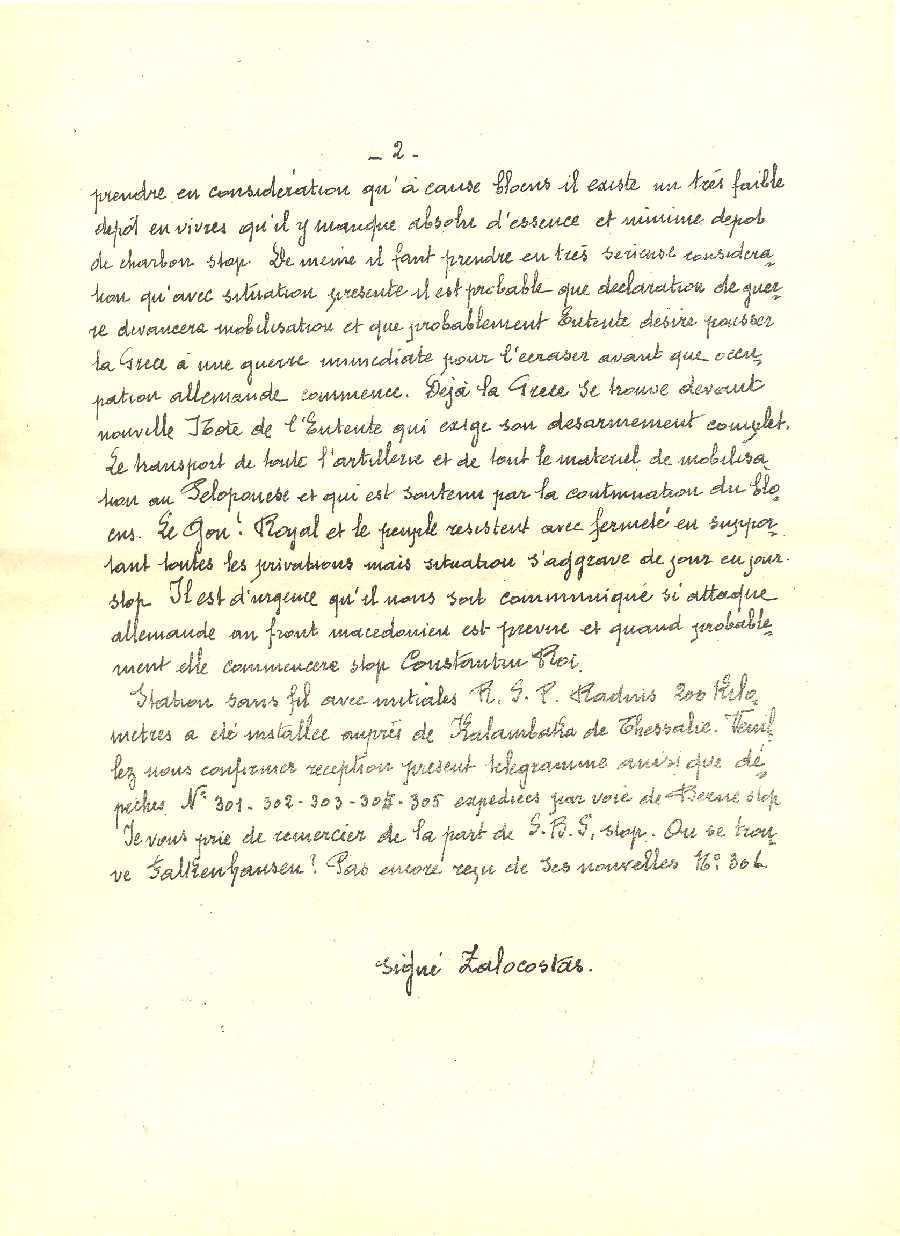 - 2 -
prendre en considération qu'à cause blocus il existe un très faible
depôt en vivres qu'il y manque absolu d'essence et minime depot
de charbon stop. De meme il faut prendre en très serieuse considera-
tion qu'avec situation presente il est probable que declaration de guer-
re devancera mobilisation et que probablement Entente desire pousser
la Grece à une guerre immediate pour l'écraser avant que occu-
pation allemande commence. Dejà la Grece se trouve devant
nouvelle Note de l'Entente qui exige son desarmement complet.
Le transport de toute l'artillerie et de tout le materiel de mobilisa-
tion au Peloponese et qui est soutenu par la continuation du blo-
cus. Le Gouv.t Royal et le peuple resistent avec fermeté en suppor-
tant toutes les privations mais situation s'aggrave de jour en jour.
stop Il est d'urgence qu'il nous soit communiqué si attaque
allemande au front macedonien est prevue et quand probable-
ment elle commencera stop Constantin Roi.
Station sans fil avec initiales R. G. P. Radius 200 Kilo-
metres a été installée auprès de Kalambaka de Thessalie. Veuil-
lez nous confirmer reception present telegramme ainsi que dé-
peches Nº 301 - 302 - 303 - 304 - 305 expediées par voie de Berne stop
Je vous prie de remercier de la part de S. B. S. stop. Ou se trou-
ve Falkenhausen? Pas encore reçu de ses nouvelles Nº 306
signé Zalocostas.